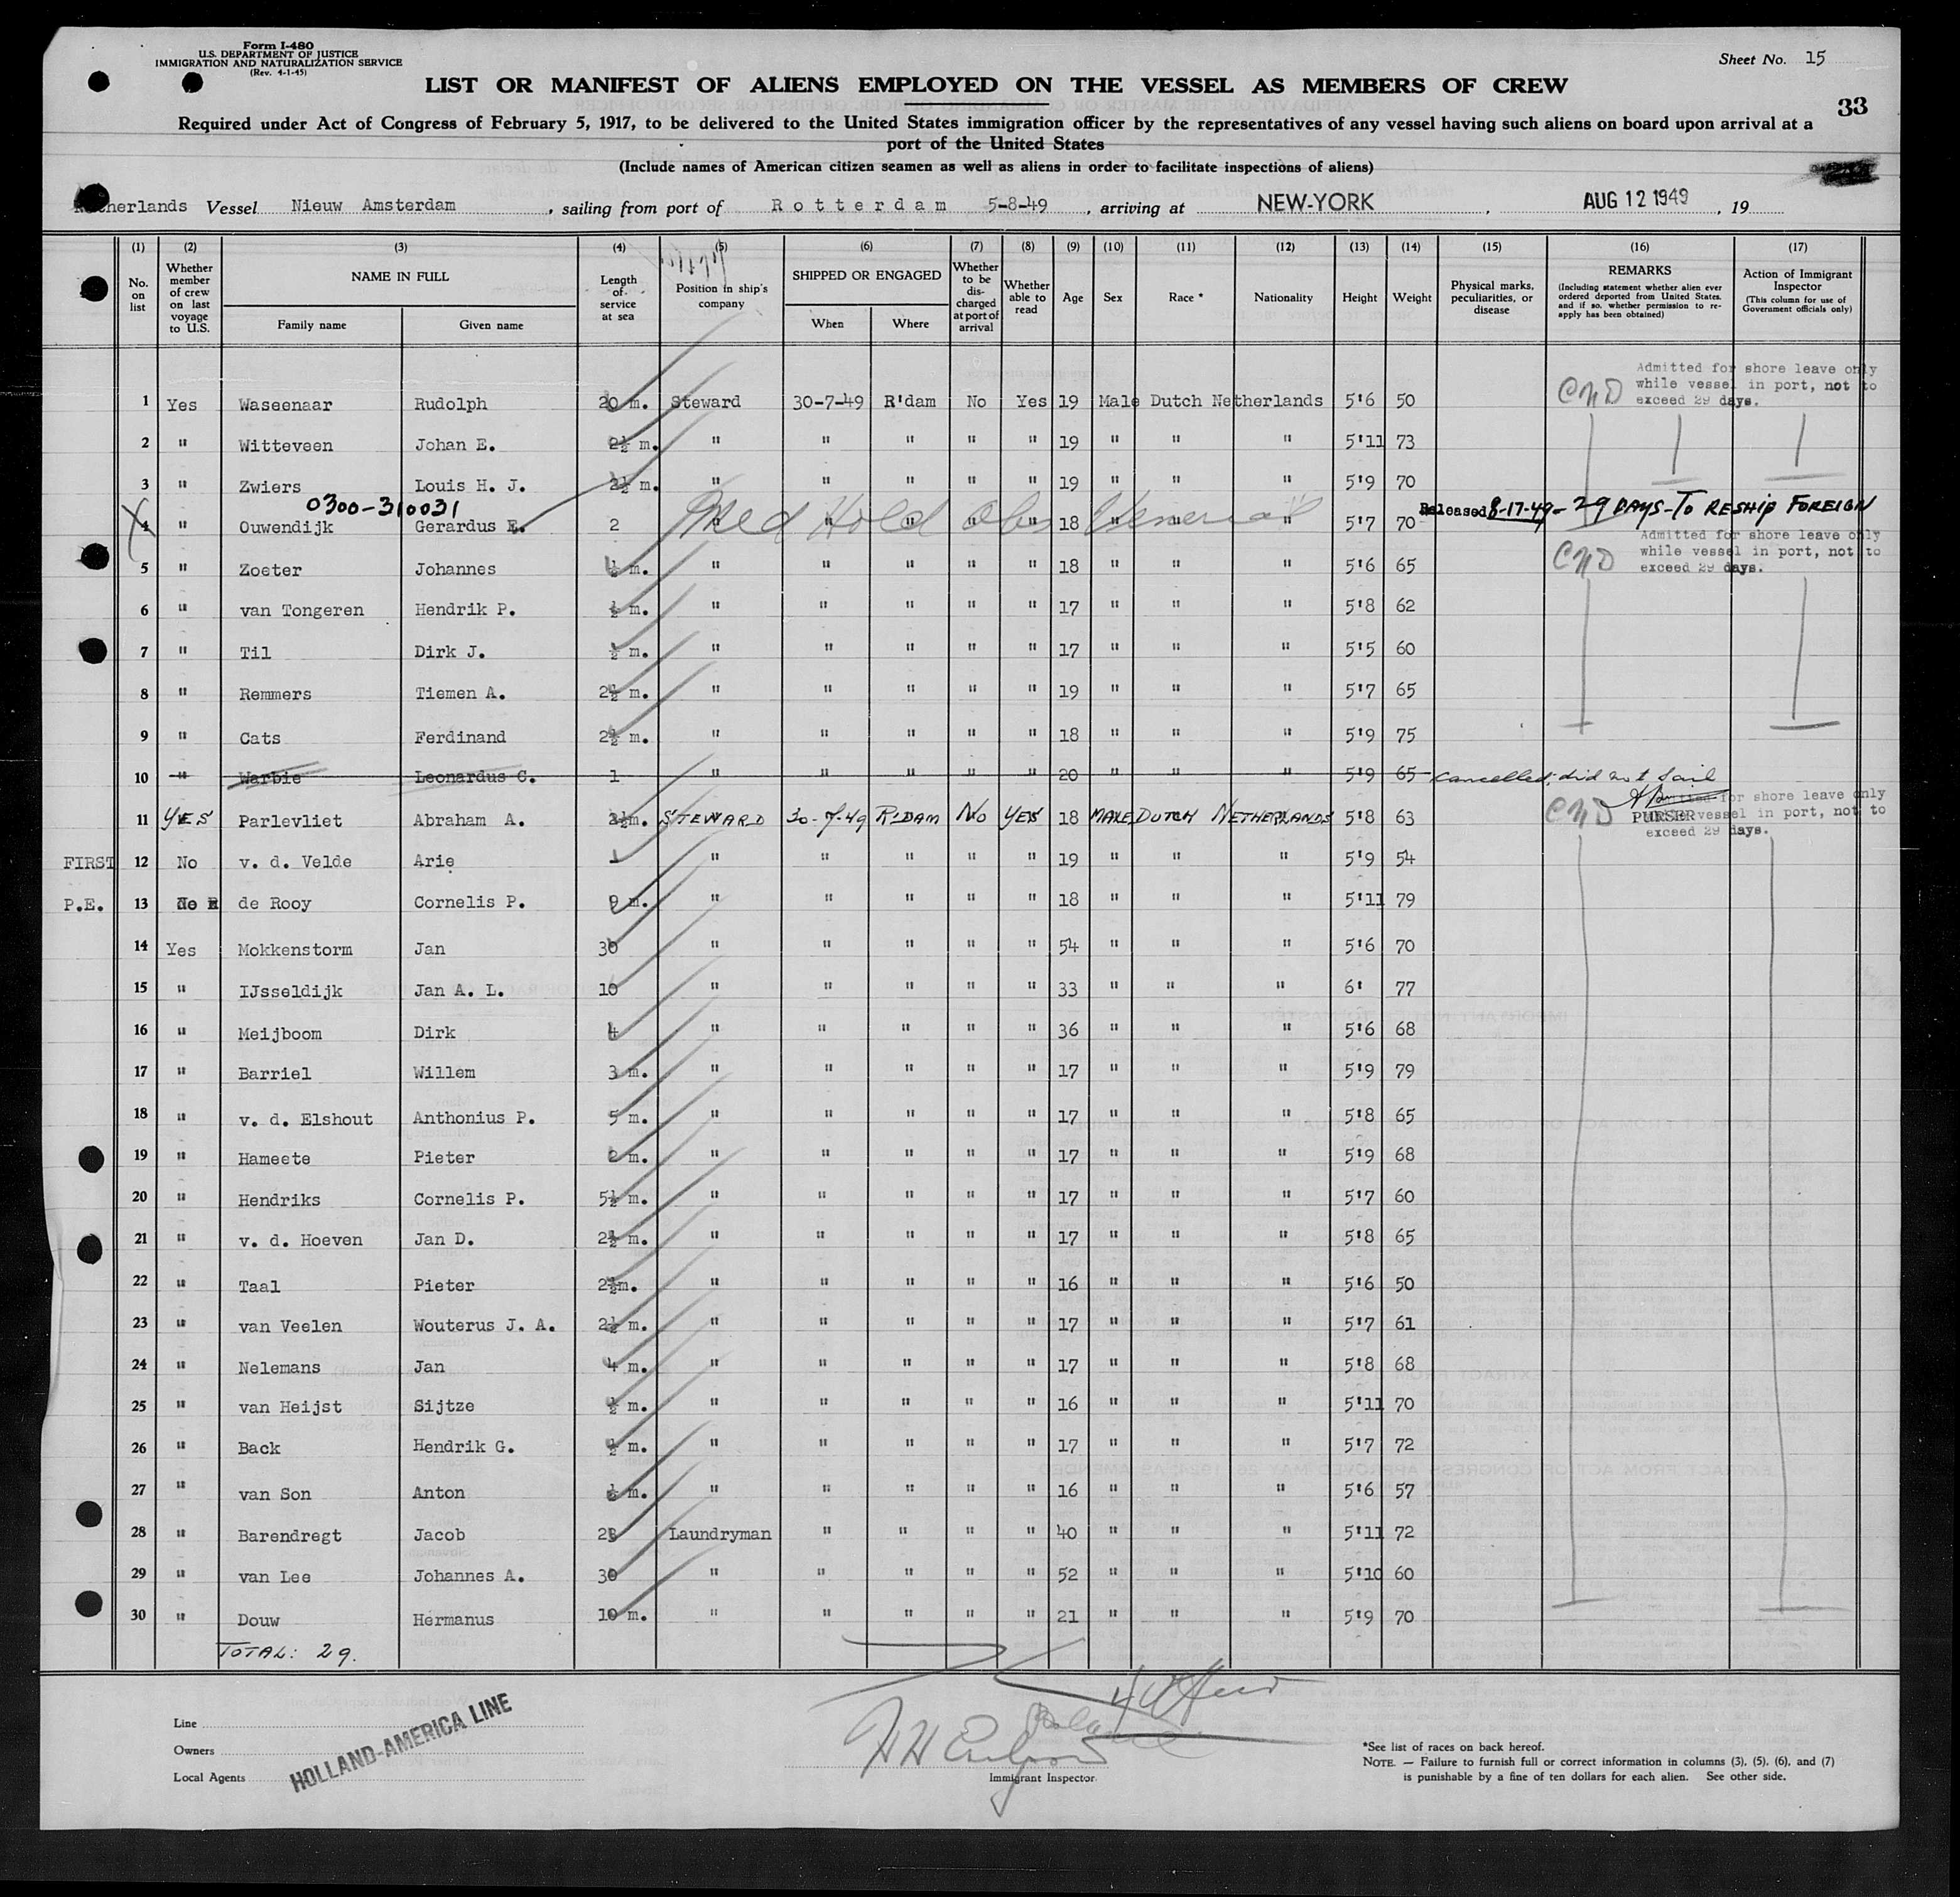 Form I-480
U.S. DEPARTMENT OF JUSTICE
IMMIGRATION AND NATURALIZATION SERVICE
(Rev. 4-1-45)
Sheet No. 15
LIST OR MANIFEST OF ALIENS EMPLOYED ON THE VESSEL AS MEMBERS OF CREW
33
Required under Act of Congress of February 5, 1917, to be delivered to the United States immigration officer by the representatives of any vessel having such aliens on board upon arrival at a
port of the United States
(Include names of American citizen seamen as well as aliens in order to facilitate inspections of aliens)
Netherlands Vessel Nieuw Amsterdam, sailing from port of Rotterdam 5-8-49, arriving at NEW-YORK, AUG 12 1949, 19
(1) (2) (3) (4) (5) (6) (7) (8) (9) (10) (11) (12) (13) (14) (15) (16) (17)
No. on list
Whether member of crew on last voyage to U.S.
NAME IN FULL
Family name Given name
Length of service at sea
Position in ship's company
SHIPPED OR ENGAGED
When Where
Whether to be discharged at port of arrival
Whether able to read
Age
Sex
Race *
Nationality
Height
Weight
Physical marks, peculiarities, or disease
REMARKS
(Including statement whether alien ever ordered deported from United States, and if so, whether permission to reapply has been obtained)
Action of Immigrant Inspector
(This column for use of Government officials only)
Admitted for shore leave only
while vessel in port, not to
exceed 29 days.
1 Yes Waseenaar Rudolph 20 m. Steward 30-7-49 R'dam No Yes 19 Male Dutch Netherlands 5'6 50
2 " Witteveen Johan E. 2½ m. " " " " " 19 " " " 5'11 73
3 " Zwiers Louis H. J. 2½ m. " " " " " 19 " " " 5'9 70
0300-310031
4 " Ouwendijk Gerardus E. 2 " " " " " 18 " " " 5'7 70
Med Hold Obs Venereal
Released 8-17-49 - 29 DAYS - TO RESHIP FOREIGN
Admitted for shore leave only
while vessel in port, not to
exceed 29 days.
5 " Zoeter Johannes ½ m. " " " " " 18 " " " 5'6 65
6 " van Tongeren Hendrik P. ½ m. " " " " " 17 " " " 5'8 62
7 " Til Dirk J. ½ m. " " " " " 17 " " " 5'5 60
8 " Remmers Tiemen A. 2½ m. " " " " " 19 " " " 5'7 65
9 " Cats Ferdinand 2½ m. " " " " " 18 " " " 5'9 75
10 " Warbie Leonardus C. 1 " " " " " 20 " " " 5'9 65 cancelled; did not sail
Admitted for shore leave only
while vessel in port, not to
exceed 29 days.
PURSER
11 YES Parlevliet Abraham A. 2½m. STEWARD 30-7-49 R'DAM NO YES 18 MALE DUTCH NETHERLANDS 5'8 63
FIRST 12 No v. d. Velde Arie " " " " " 19 " " " 5'9 54
P.E. 13 No de Rooy Cornelis P. 9 m. " " " " " 18 " " " 5'11 79
14 Yes Mokkenstorm Jan 30 " " " " " 54 " " " 5'6 70
15 " IJsseldijk Jan A. L. 10 " " " " " 33 " " " 6' 77
16 " Meijboom Dirk 4 " " " " " 36 " " " 5'6 68
17 " Barriel Willem 3 m. " " " " " 17 " " " 5'9 79
18 " v. d. Elshout Anthonius P. 5 m. " " " " " 17 " " " 5'8 65
19 " Hameete Pieter 2 m. " " " " " 17 " " " 5'9 68
20 " Hendriks Cornelis P. 5½ m. " " " " " 17 " " " 5'7 60
21 " v. d. Hoeven Jan D. 2½ m. " " " " " 17 " " " 5'8 65
22 " Taal Pieter 2½m. " " " " " 16 " " " 5'6 50
23 " van Veelen Wouterus J. A. 2½ m. " " " " " 17 " " " 5'7 61
24 " Nelemans Jan 4 m. " " " " " 17 " " " 5'8 68
25 " van Heijst Sijtze ½ m. " " " " " 16 " " " 5'11 70
26 " Back Hendrik G. ½ m. " " " " " 17 " " " 5'7 72
27 " van Son Anton ½ m. " " " " " 16 " " " 5'6 57
28 " Barendregt Jacob 23 Laundryman " " " " 40 " " " 5'11 72
29 " van Lee Johannes A. 30 " " " " " 52 " " " 5'10 60
30 " Douw Hermanus 10 m. " " " " " 21 " " " 5'9 70
TOTAL: 29.
Line
Owners
Local Agents
HOLLAND-AMERICA LINE
Immigrant Inspector.
*See list of races on back hereof.
NOTE. — Failure to furnish full or correct information in columns (3), (5), (6), and (7)
is punishable by a fine of ten dollars for each alien. See other side.